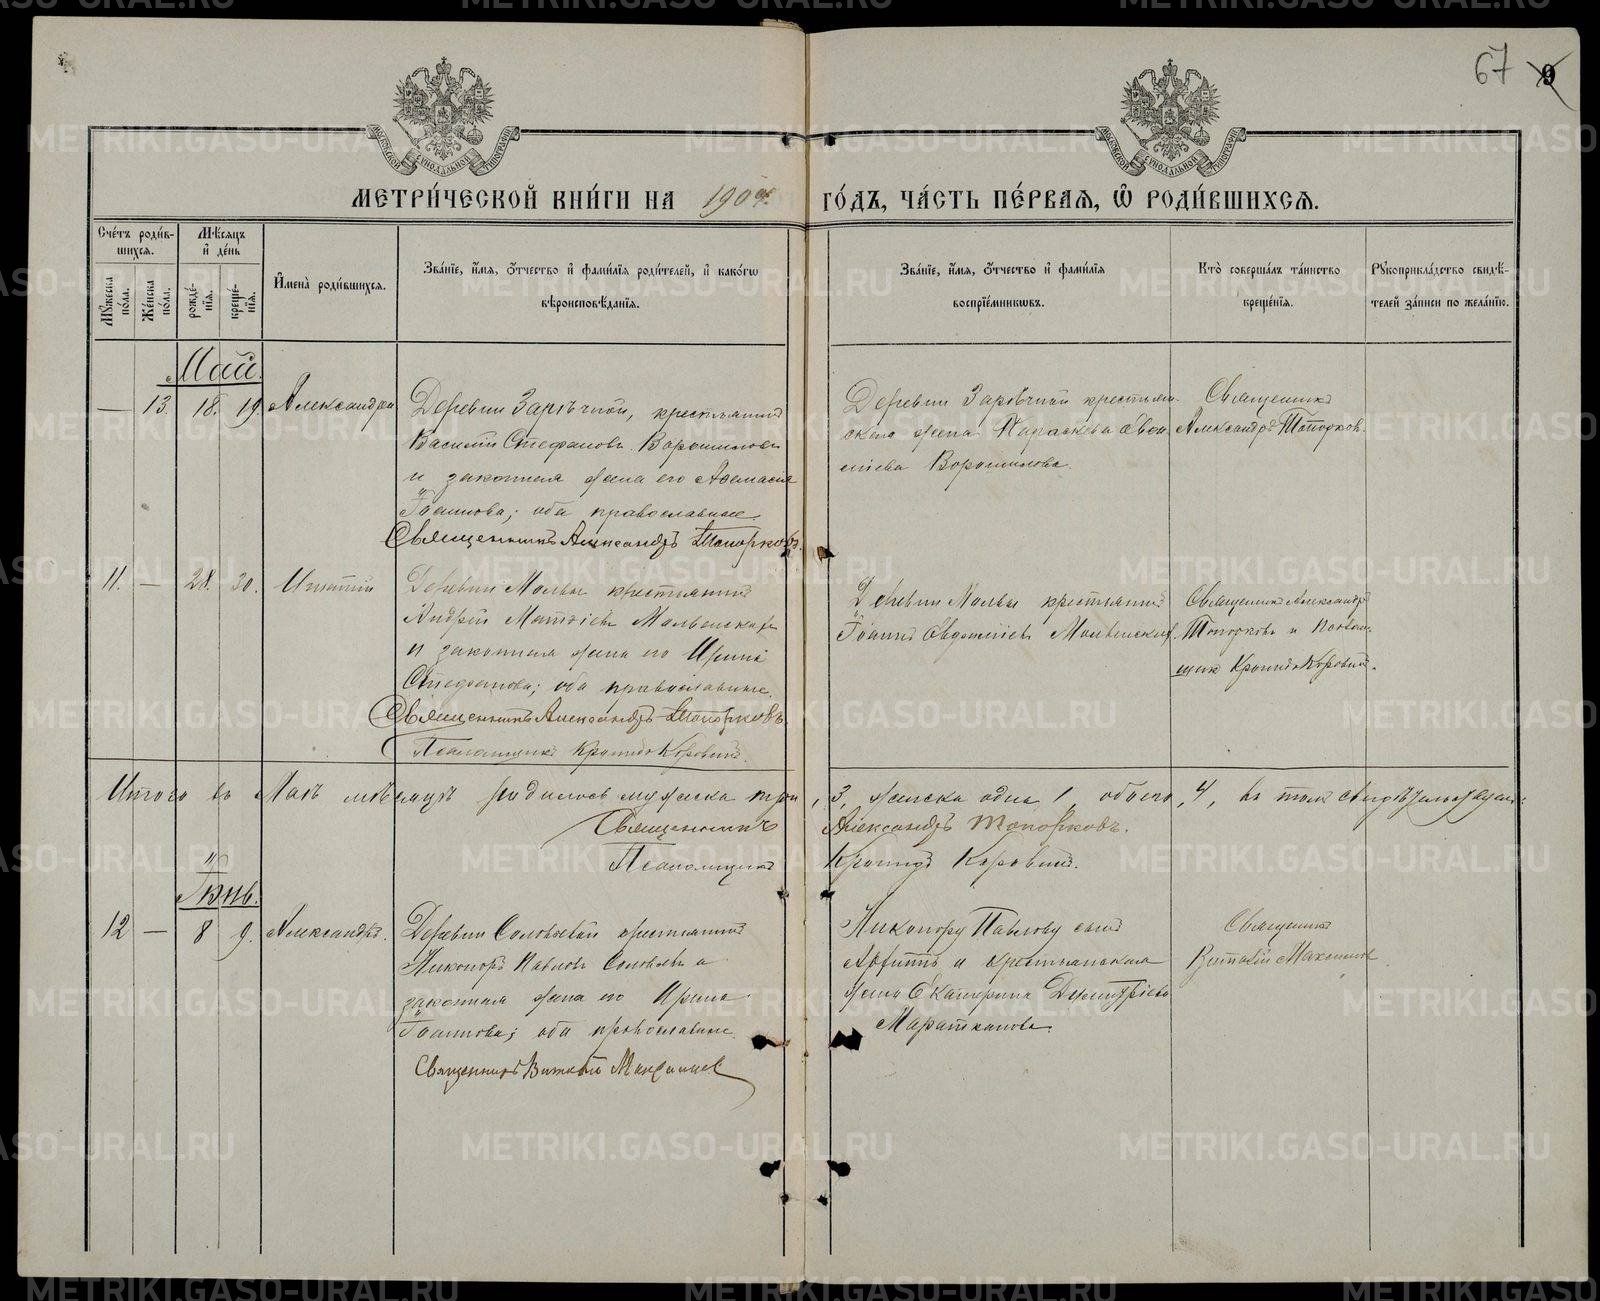 67 9
МЕТРИ́ЧЕСКОЙ КНИ́ГИ НА 1904 ГО́ДЪ, ЧА́СТЬ ПЕ́РВАЯ, Ѡ҆ РОДИ́ВШИХСЯ.
Сче́тъ роди́в-
шихся.
Мѣ́сяцъ
и҆ де́нь
И҆мена̀ роди́вшихся.
Зва́нїе, и҆́мя, ѻ҆́тчество и҆ фами́лїя роди́телей, и҆ како́гѡ
вѣроисповѣ́данїя.
Зва́нїе, и҆́мя, ѻ҆́тчество и҆ фами́лїя
воспрїе́мникѡвъ.
Кто̀ соверша́лъ та́инство
креще́нїя.
Рꙋкоприкла́дство свидѣ́-
телей за́писи по жела́нїю.
Мꙋ́жеска
по́ла.
Же́нска
по́ла.
рожде́-
нїя.
креще́-
нїя.
Май.
— 13. 18. 19. Александра
Деревни Зарѣчной, крестьянинъ
Василій Стефановъ Ворошиловъ
и законная жена его Афанасія
Іоаннова; оба православные.
Священникъ Александръ Топорковъ.
Деревни Зарѣчной крестьян-
ская жена Параскева
Ворошилова.
Священникъ
Александръ Топорковъ.
11. — 28. 30. Игнатій
Деревни Мольвы крестьянинъ
Андрей Матѳіевъ
и законная жена его Ирина
Стефанова; оба православные.
Священникъ Александръ Топорковъ.
Псаломщикъ Кронидъ Коровинъ.
Деревни Мольвы крестьянинъ
Іоаннъ Евдокіевъ
Священникъ Александръ
Топорковъ и Псалом-
щик Кронидъ Коровин.
Итого въ Маѣ мѣсяцѣ родилось мужеска три, 3, женска одна, 1, обоего, 4, въ том
Священникъ Александръ Топорковъ.
Псаломщикъ Кронидъ Коровинъ.
Іюнь.
12 — 8 9. Александръ.
Деревни Соловьевой крестьянинъ
Никоноръ Павловъ Соловьевъ и
законная жена его Ирина
Іоаннова; оба православные.
Священникъ Виталій
Никонору Павлову сынъ
и крестьянская
жена Екатерина Димитріева
Мараткановa
Священникъ
Виталій